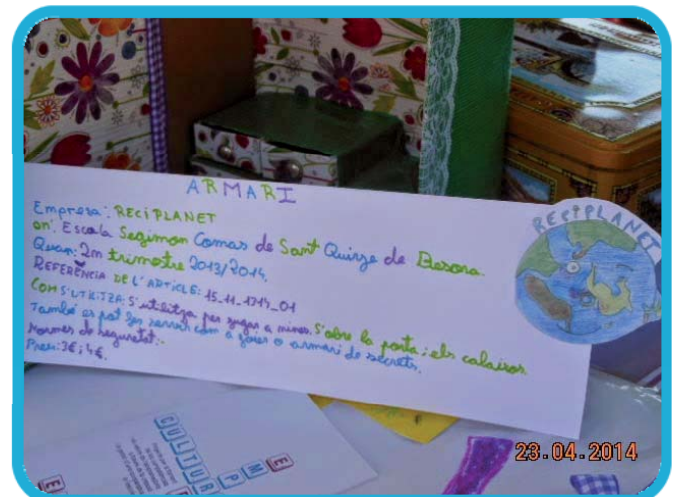 ARMARI
Empresa: RECIPLANET
on: Escola Segimon Comas de Sant Quirze de Besora.
Quan: 2n trimestre 2013/2014.
REFERÈNCIA DE L'ARTICLE: 15_11_1714_01
COM S'UTILITZA: S'utilitza per jugar a nines. S'obre la porta i els calaixos.
També es pot fer servir com a joier o armari de secrets.
Normes de seguretat: -
Preu: 3€ i 4€.
RECIPLANET
CULTURA
EMP
23.04.2014